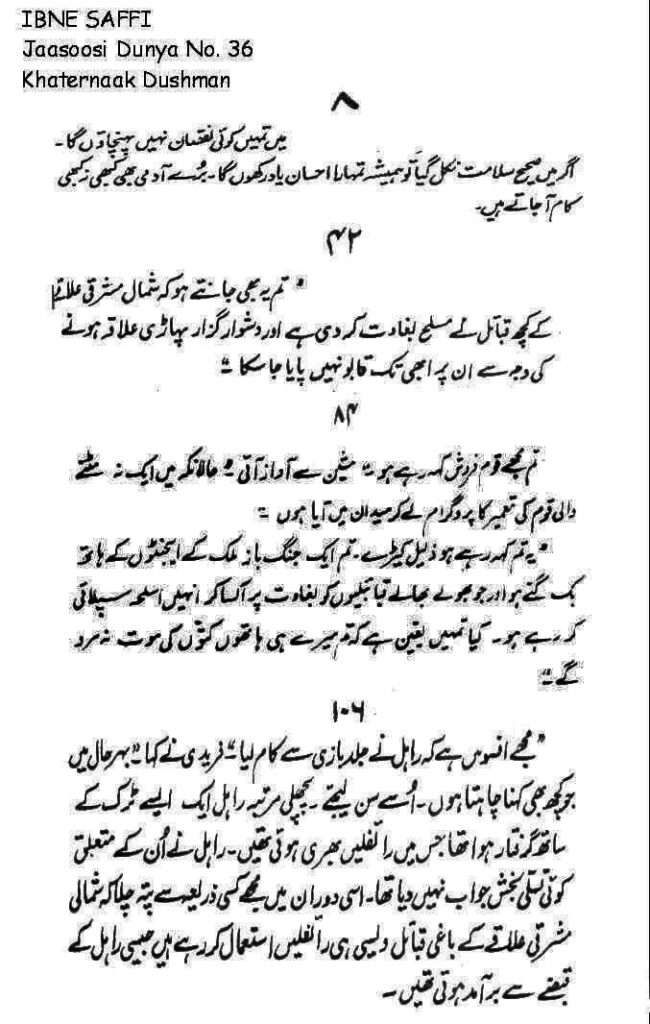 IBNE SAFFI
Jaasoosi Dunya No. 36
Khaternaak Dushman
۸
میں تمہیں کوئی نقصان نہیں پہنچاؤں گا۔
اگر میں صحیح سلامت نکل گیا تو ہمیشہ تمہارا احسان یاد رکھوں گا۔ بُرے آدمی بھی کبھی نہ کبھی
کام آجاتے ہیں۔
۴۲
" تم یہ بھی جانتے ہو کہ شمال مشرقی علاقے
کے کچھ قبائل نے مسلح بغاوت کر دی ہے اور دشوار گزار پہاڑی علاقہ ہونے
کی وجہ سے ان پر ابھی تک قابو نہیں پایا جا سکا ۔"
۸۴
تم مجھے قوم فروش کہہ رہے ہو۔" مشین سے آواز آئی۔" حالانکہ میں ایک نہ مٹنے
والی قوم کی تعمیر کا پروگرام لے کر میدان میں آیا ہوں ۔"
" یہ تم کہہ رہے ہو ذلیل کیڑے۔ تم ایک جنگ باز ملک کے ایجنٹوں کے ہاتھ
بک گئے ہو اور جو بھولے بھالے قبائیلیوں کو بغاوت پر اُکسا کر انہیں اسلحہ سپلائی
کر رہے ہو۔ کیا تمہیں یقین ہے کہ تم میرے ہی ہاتھوں کتّوں کی موت نہ مرو
گے۔"
۱۰۶
" مجھے افسوس ہے کہ راہل نے جلد بازی سے کام لیا۔" فریدی نے کہا۔" بہرحال میں
جو کچھ بھی کہنا چاہتا ہوں۔ اُسے سن لیجئے ۔ پچھلی مرتبہ راہل ایک ایسے ٹرک کے
ساتھ گرفتار ہوا تھا جس میں رائفلیں بھری ہوئی تھیں۔ راہل نے اُن کے متعلق
کوئی تسلی بخش جواب نہیں دیا تھا۔ اسی دوران میں مجھے کسی ذریعہ سے پتہ چلا کہ شمالی
مشرقی علاقے کے باغی قبائل ویسی ہی رائفلیں استعمال کر رہے ہیں جیسی راہل کے
قبضے سے برآمد ہوئی تھیں۔